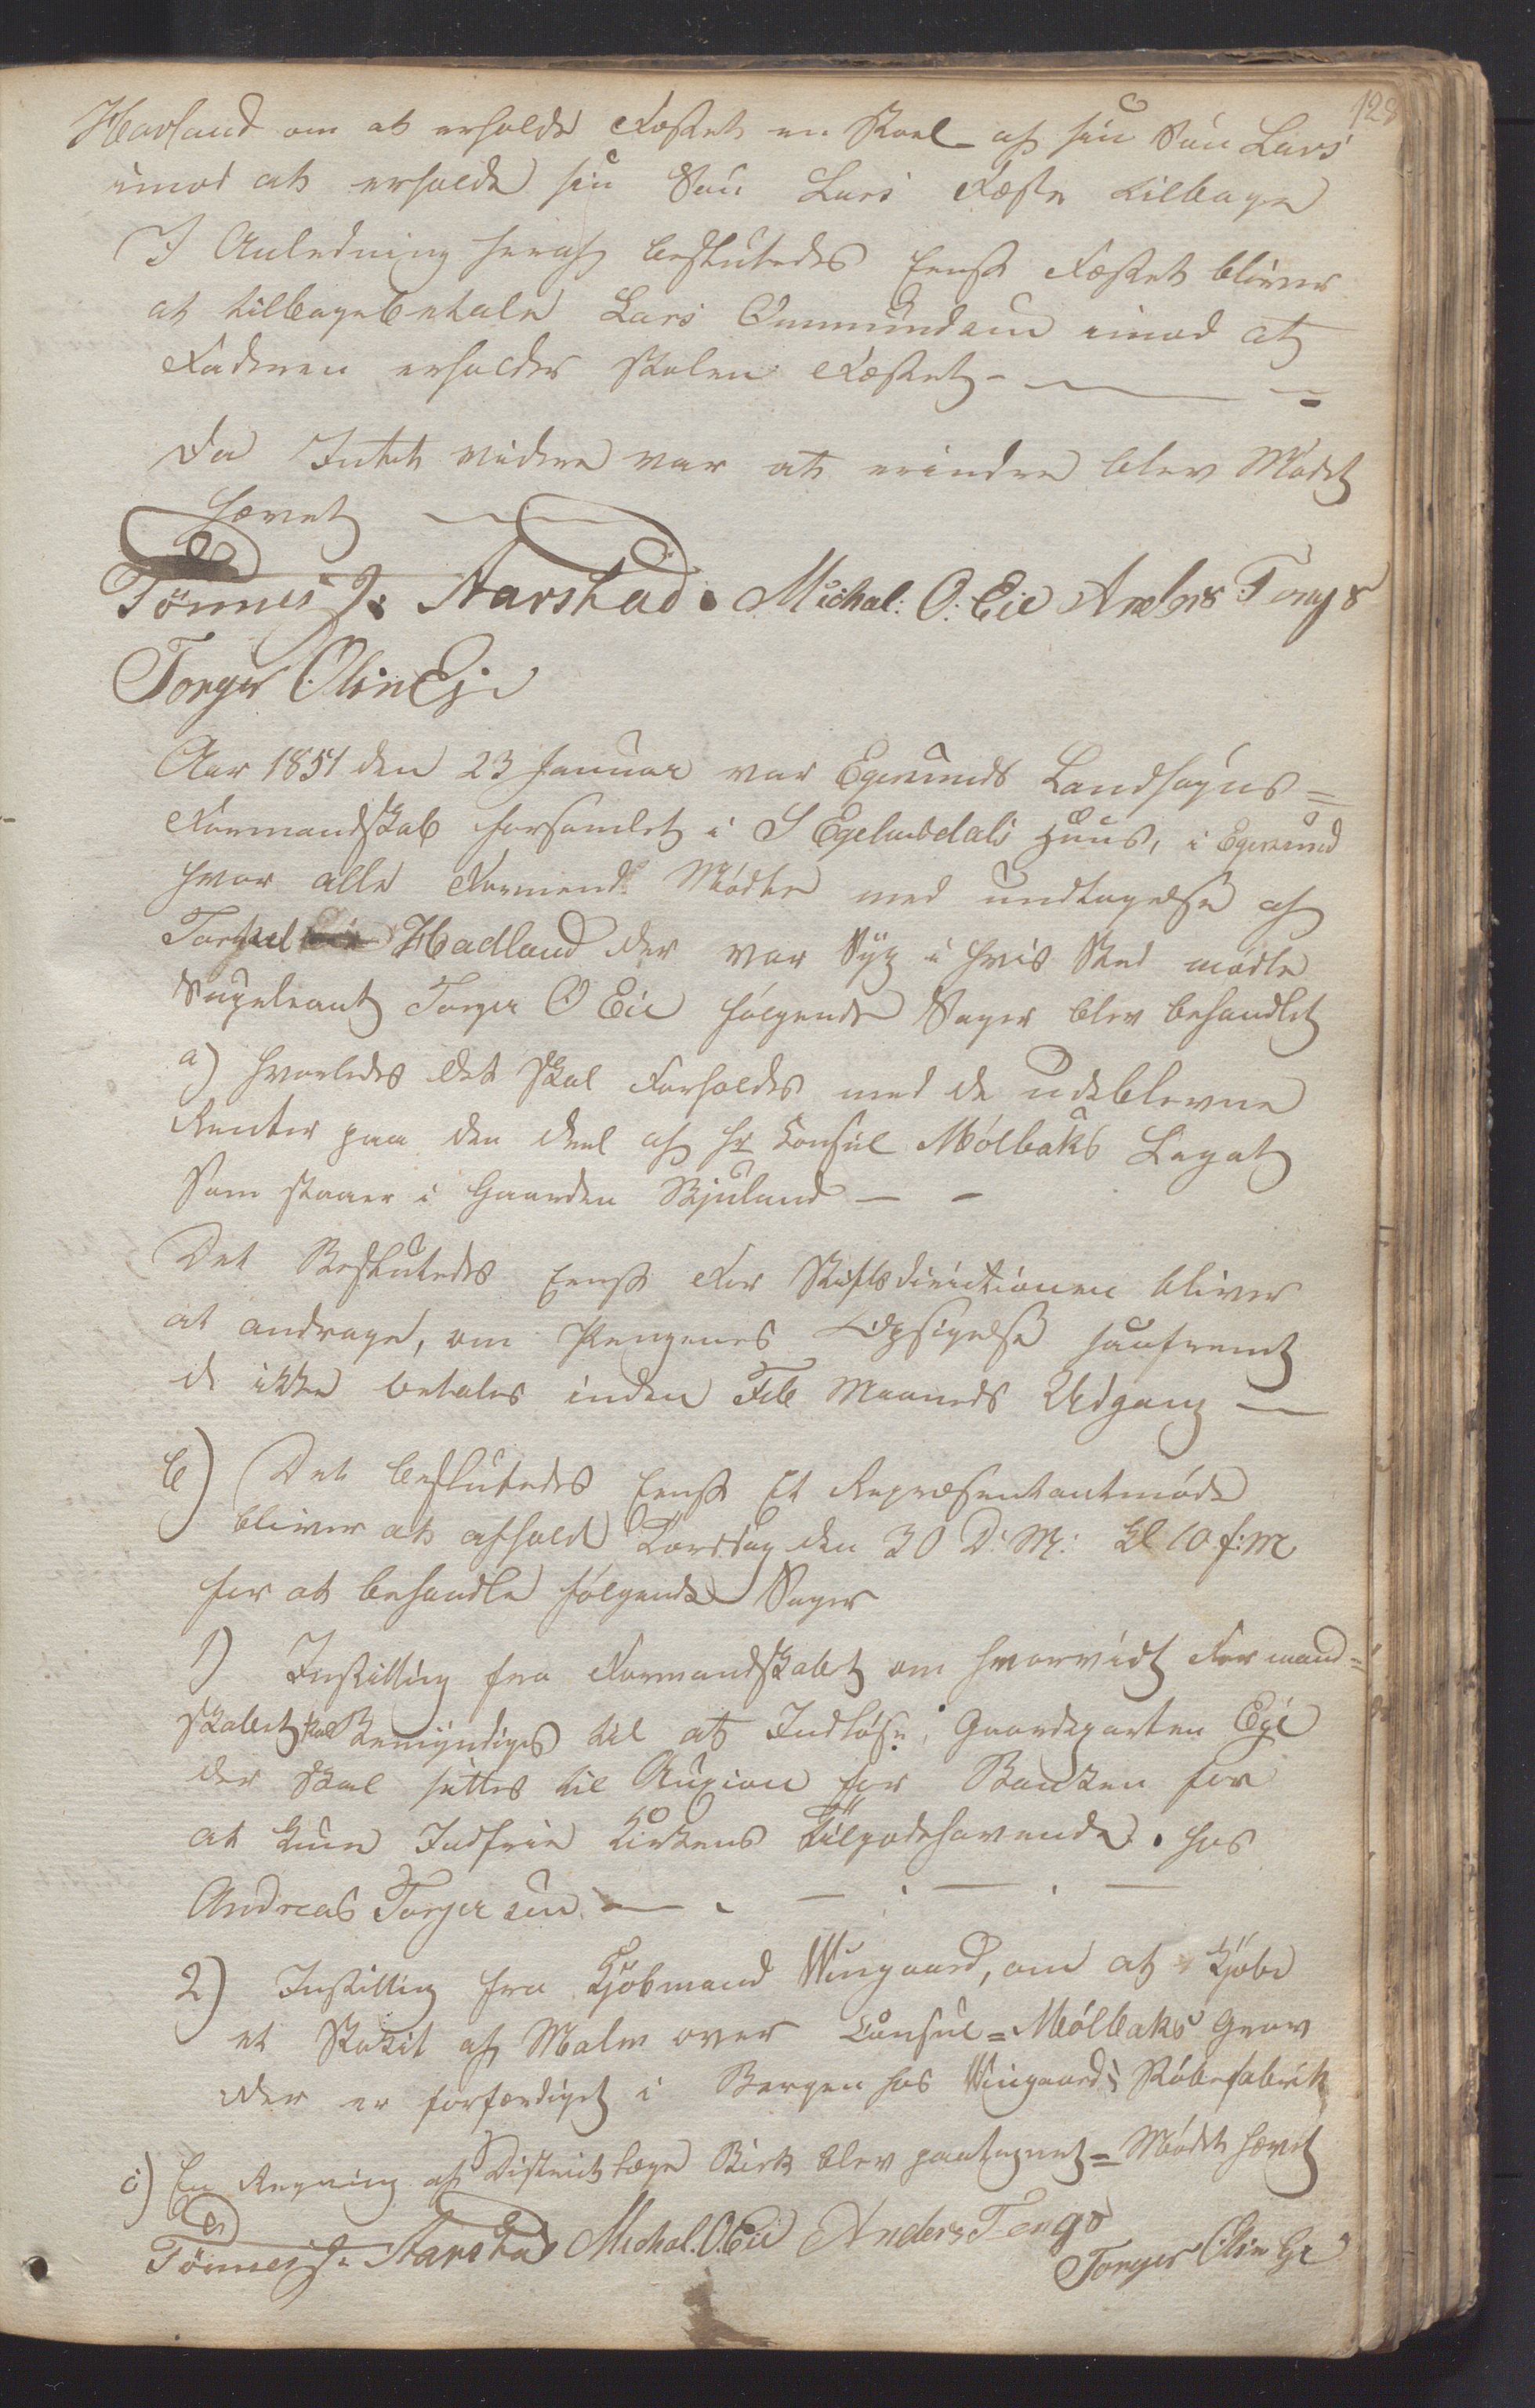 128
Havsland om at erholde Fæstet en Stoel af sin Søn Lars
imod at erholde sin Søn Lars Fæste tilbage
I Anledning heraf besluttedes Eenst. Fæstet bliver
at tilbagebetale Lars Ommundsen imod at
Faderen erholder Stolen Fæstet –
Da Intet videre var at erindre blev Mødet
hævet
Tønnes J: Aarstad. Michal: O: Eie Anders Tengs
Torger Olsn Eje
Aar 1851 den 23 Januar var Egersunds Landsogns=
Formandskab forsamlet i S Egelandsdals Huus, i Egersund
hvor alle Formænd Mødte med undtagelse af
Torkel Hadland der var Syg i hvis Sted mødte
Supleant Torger O Eie følgende Sager blev behandlet
a) hvorledes det skal Forholdes med de udeblevne
Renter paa den Deel af Hr Consul Mølbaks Legat
Som staaer i Gaarden Skjuland – –
Det Besluttedes Eenst For Stiftsdirectionen bliver
at andrage, om Pengenes Opsigelse saafremt
de ikke betales inden Feb Maaneds Udgang –
b) Det besluttedes Eenst Et Repræsentantmøde
bliver at afhold Torsdag den 30 D: M: Kl 10 f:m
for at behandle følgende Sager
1) Instilling fra Formandskabet om hvorvidt Formand=
skabet skal Bemyndiges til at Indløse Gaardsparten Ege
der skal settes til Auxion for Banken for
at kun Indfrie Kirkens Tilgodehavende. hos
Andreas Torgersen –
2) Instilling fra Kjøbmand Wingaard, om at Kjøbe
et Stakit af Malm over Consul=Mølbaks Grav
der er forfærdiget i Bergen hos Wingaards Støbefabrik
c) En Regning af Districtslæge Birk blev paategnet= Mødet hævet
Tønnes J: Aarstad Michal. O: Eie Anders Tengs
Torger Olsn Eie